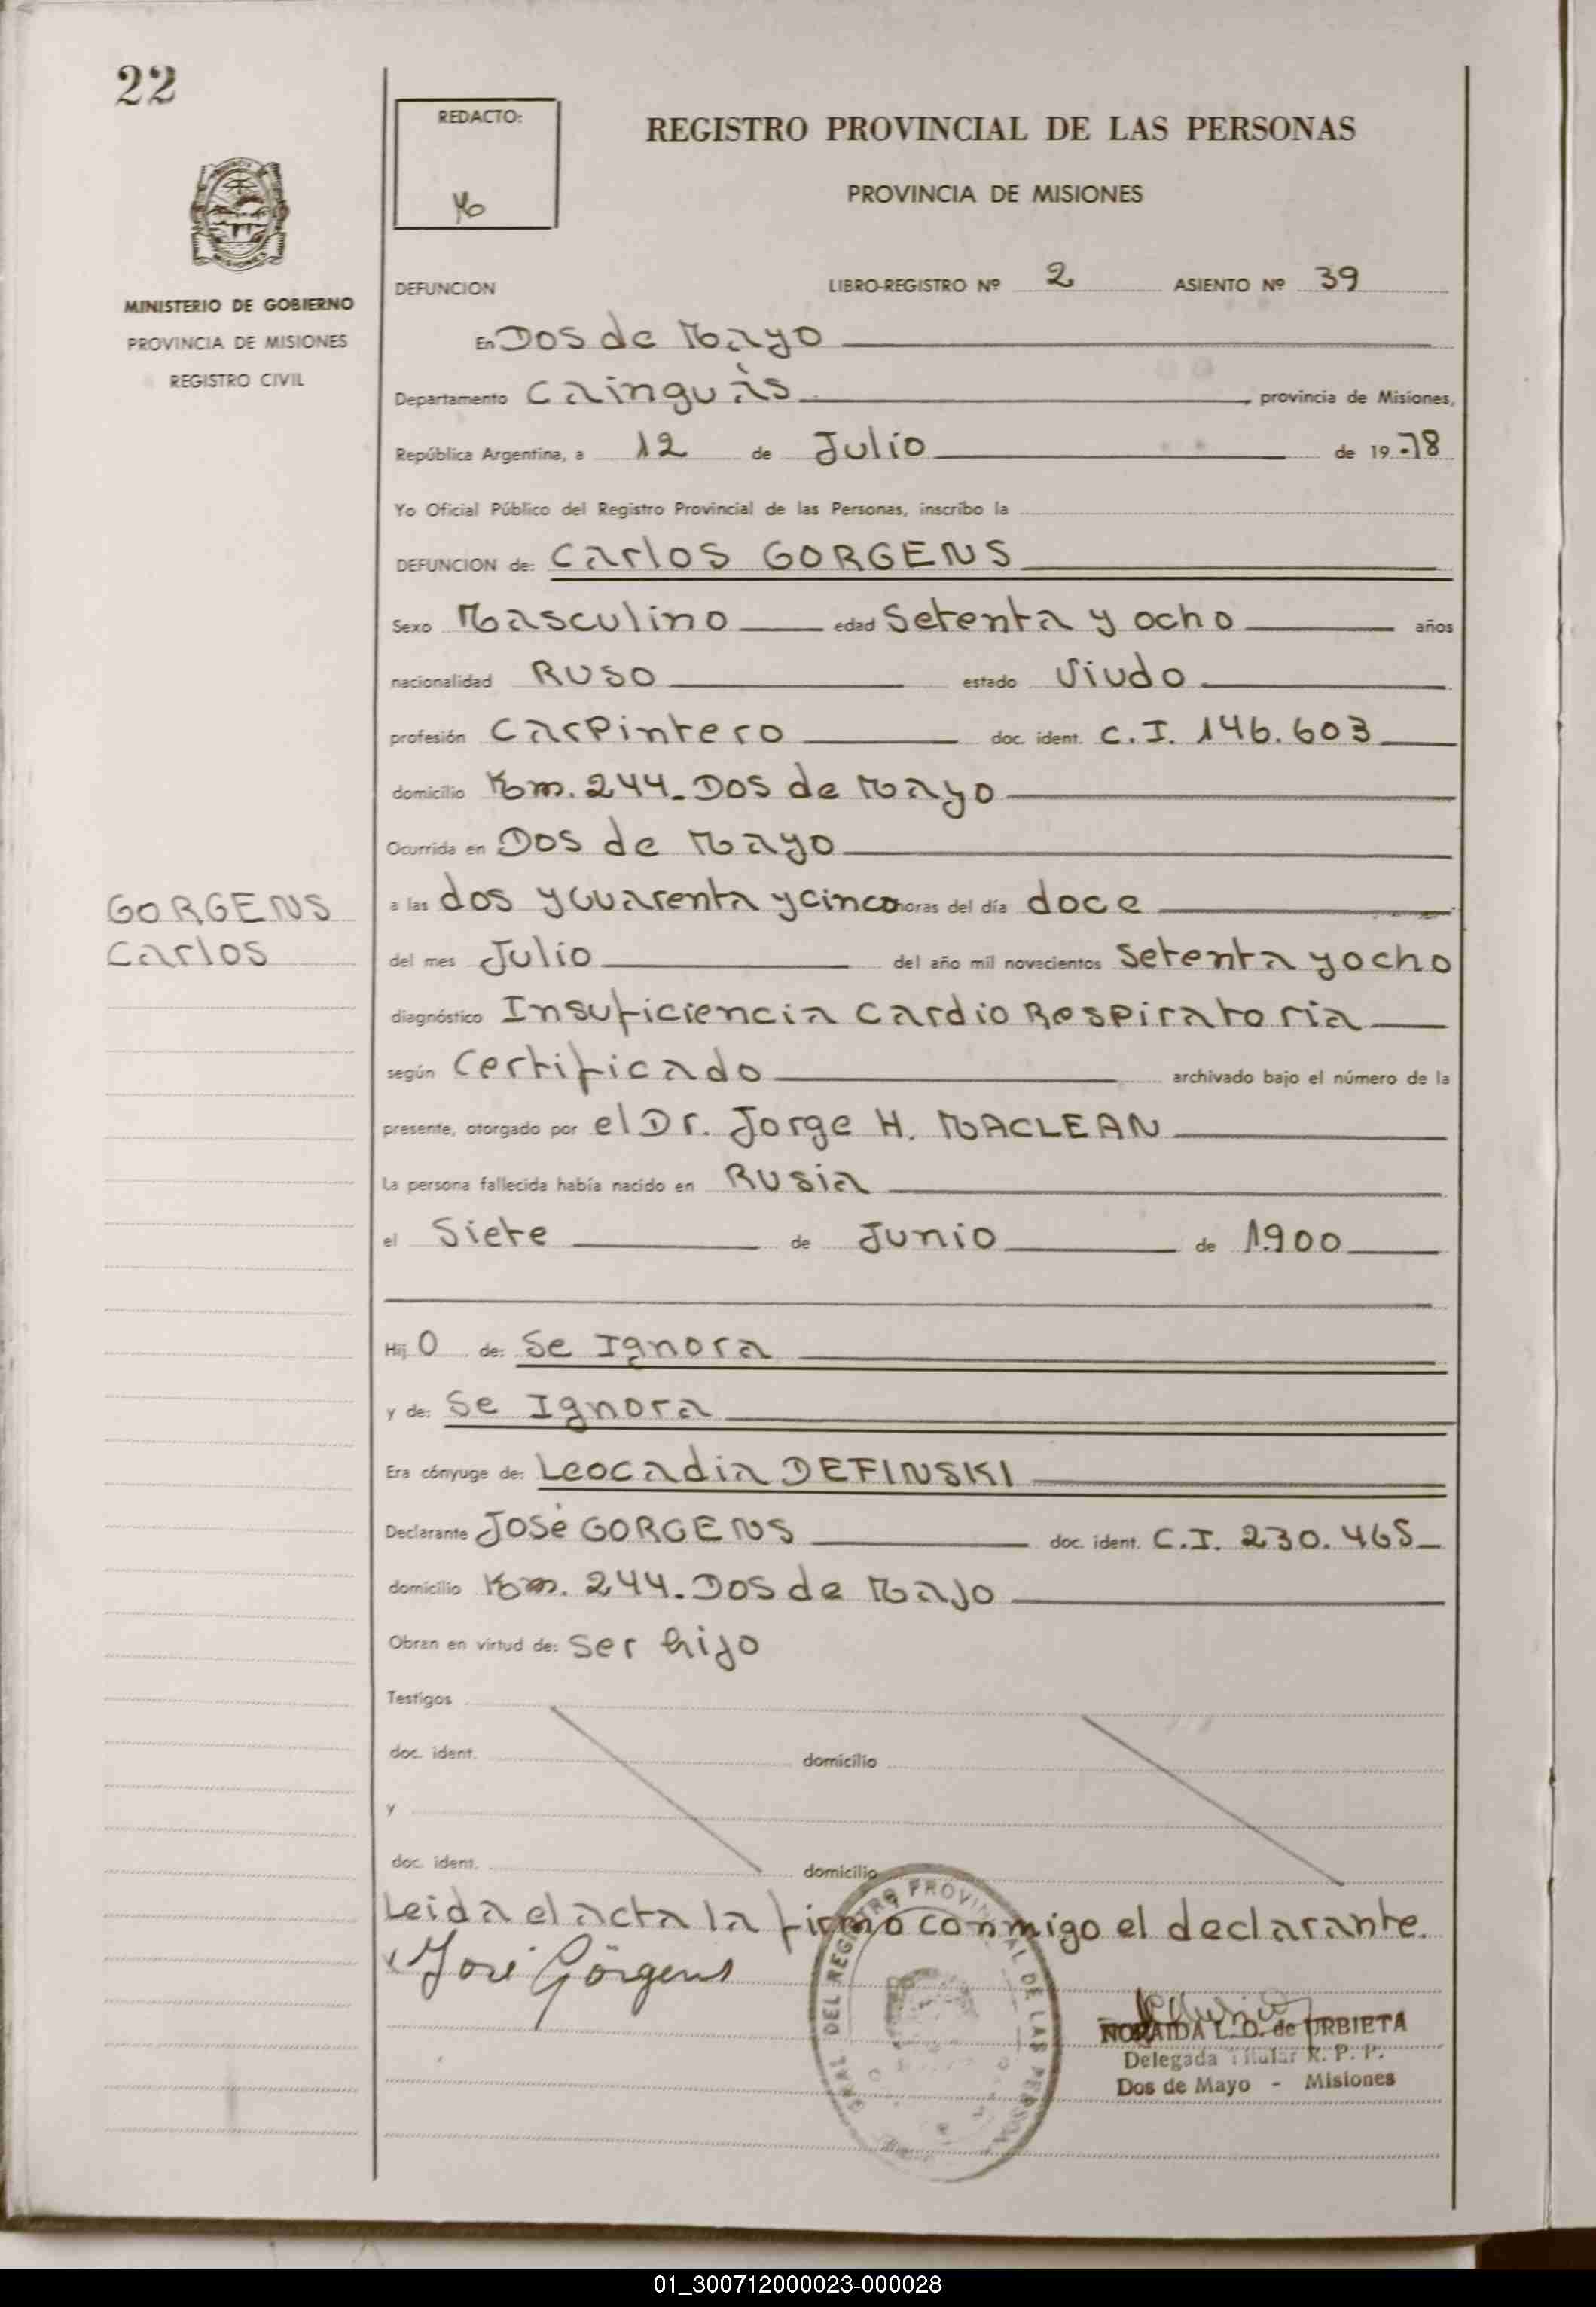 22
REDACTO:
REGISTRO PROVINCIAL DE LAS PERSONAS
PROVINCIA DE MISIONES
MISIONES
MINISTERIO DE GOBIERNO
PROVINCIA DE MISIONES
REGISTRO CIVIL
DEFUNCION LIBRO-REGISTRO Nº 2 ASIENTO Nº 39
En Dos de Mayo
Departamento Cainguàs, provincia de Misiones,
República Argentina, a 12 de Julio de 19-78
Yo Oficial Público del Registro Provincial de las Personas, inscribo la
DEFUNCION de: Carlos GORGENS
Sexo Masculino edad Setenta y ocho años
nacionalidad Ruso estado Viudo
profesión Carpintero doc. ident. C.I. 146.603
domicilio Km. 244-Dos de Mayo
Ocurrida en Dos de Mayo
GORGENS
Carlos
a las dos y cuarenta y cinco horas del día doce
del mes Julio del año mil novecientos Setenta y ocho
diagnóstico Insuficiencia Cardio Respiratoria
según Certificado archivado bajo el número de la
presente, otorgado por el Dr. Jorge H. MACLEAN
La persona fallecida había nacido en Rusia
el Siete de Junio de 1.900
Hij o de: Se Ignora
y de: Se Ignora
Era cónyuge de: Leocadia DEFINSKI
Declarante José GORGENS doc. ident. C.I. 230.465
domicilio Km. 244-Dos de Majo
Obran en virtud de: Ser hijo
Testigos
doc. ident. domicilio
y
doc. ident. domicilio
Leida el acta la firmo conmigo el declarante.
José Görgens
GRAL DEL REGISTRO PROVINCIAL DE LAS PERSONA
NORAIDA L. O. de URBIETA
Delegada Titular R. P. P.
Dos de Mayo - Misiones
01_300712000023-000028